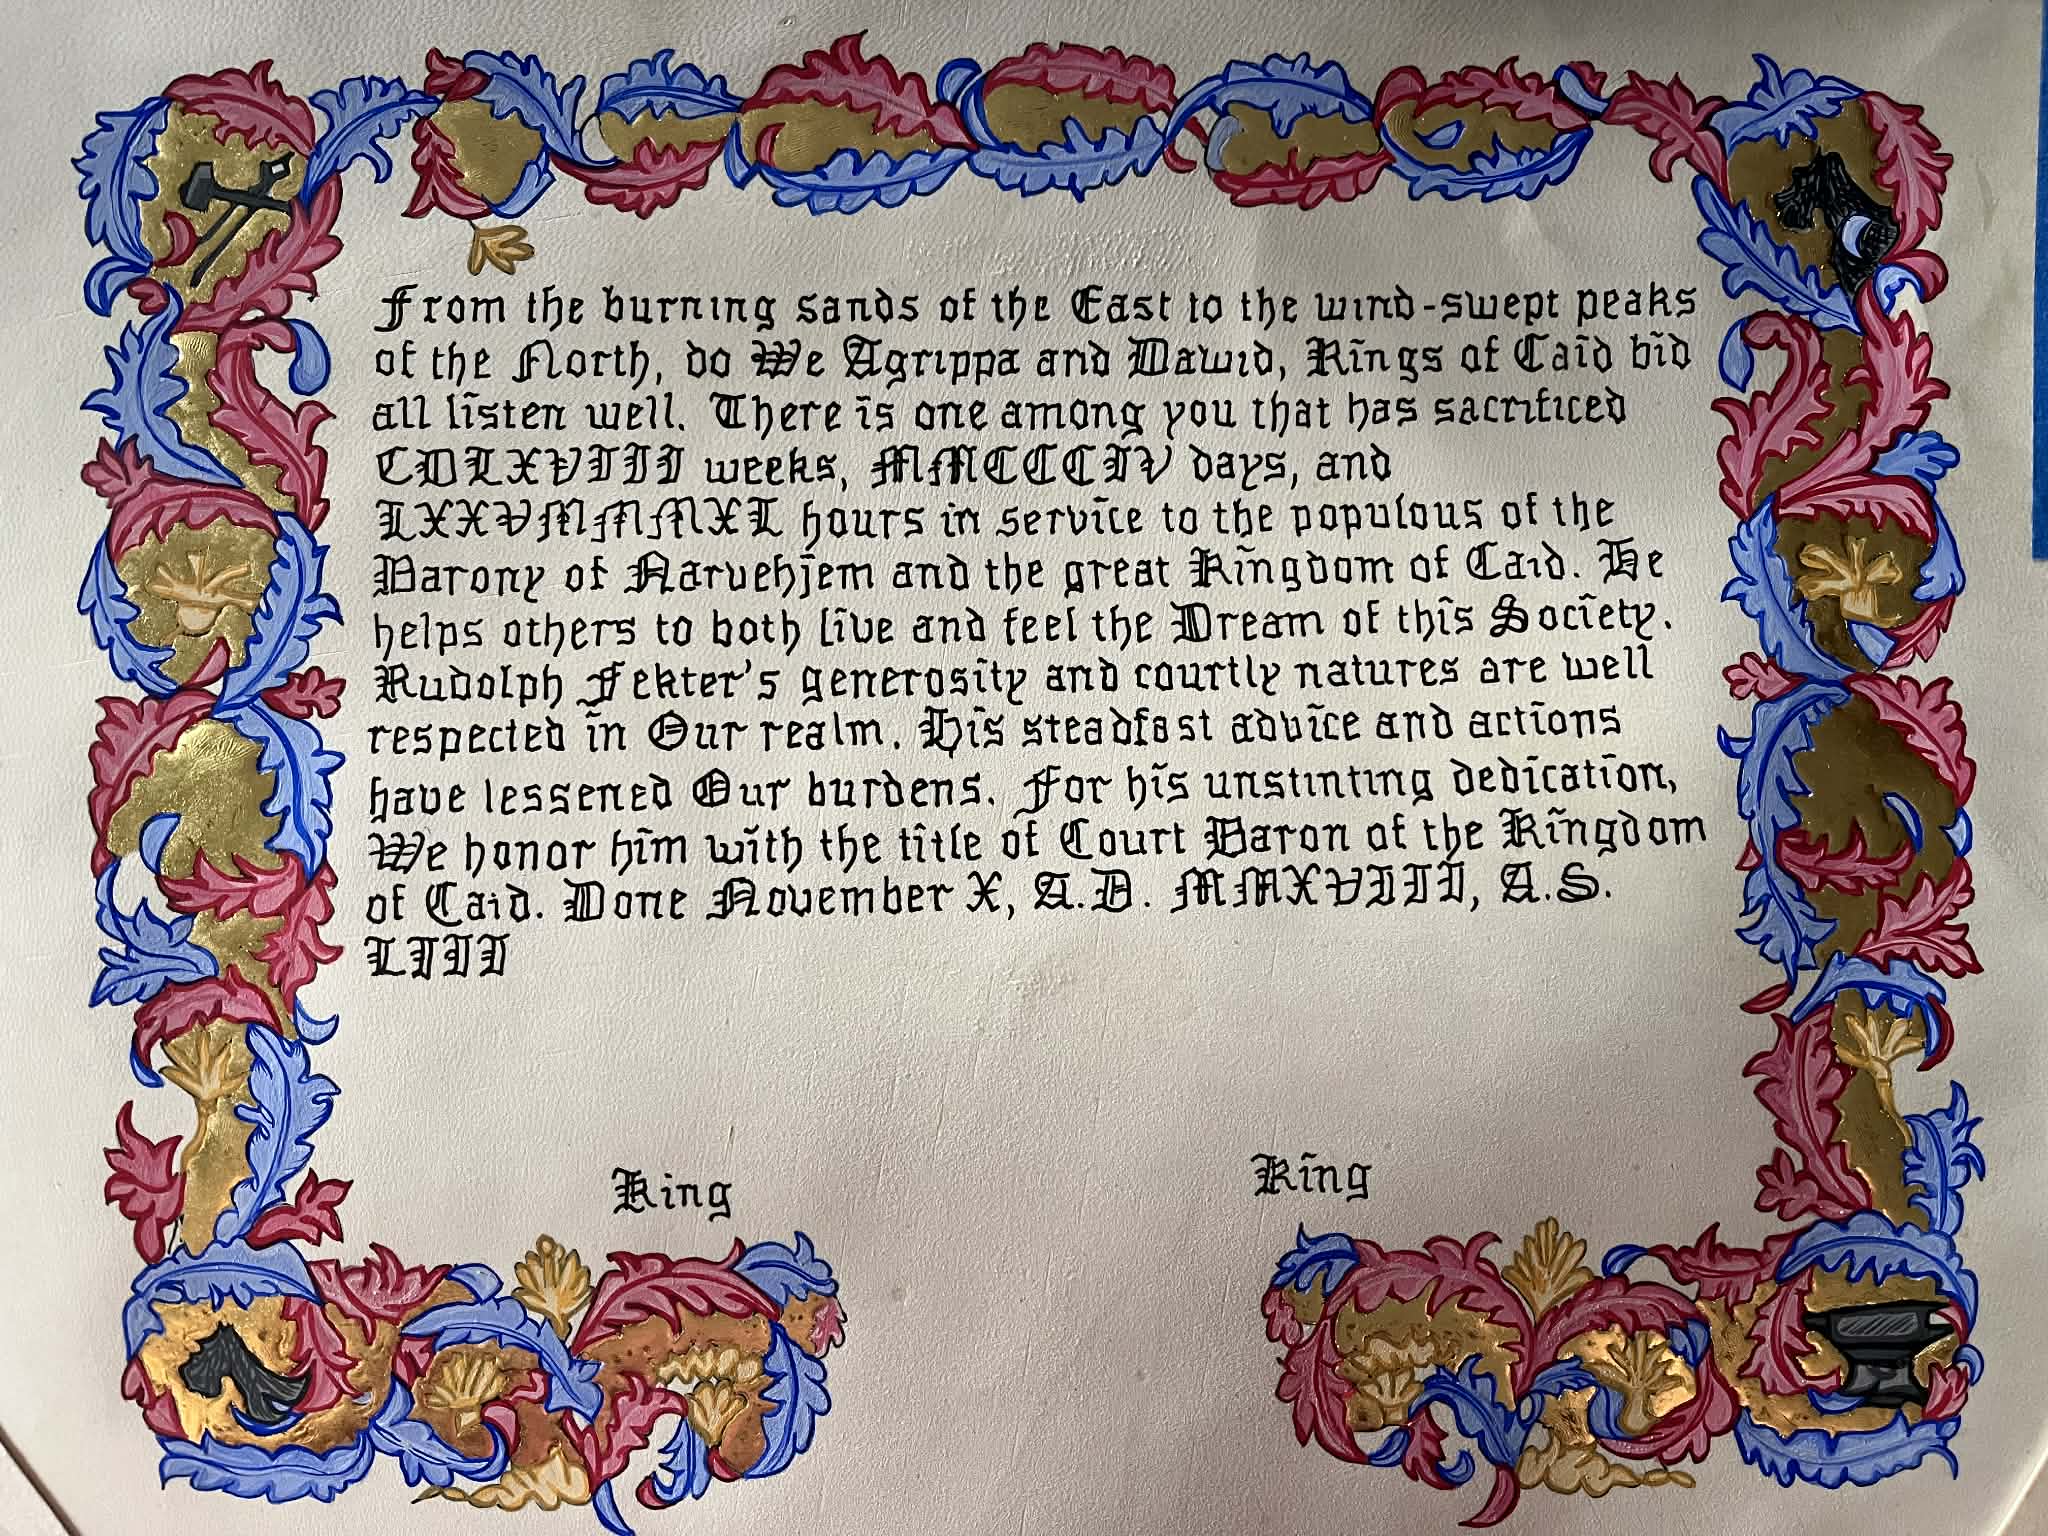 From the burning sands of the East to the wind-swept peaks
of the North, do We Agrippa and Dawid, Kings of Caid bid
all listen well. There is one among you that has sacrificed
CDLXVIII weeks, MMCCCIV days, and
LXXVMMMXL hours in service to the populous of the
Barony of Naruehjem and the great Kingdom of Caid. He
helps others to both live and feel the Dream of this Society.
Rudolph Fekter's generosity and courtly natures are well
respected in Our realm. His steadfast advice and actions
have lessened Our burdens. For his unstinting dedication,
We honor him with the title of Court Baron of the Kingdom
of Caid. Done November X, A.D. MMXVIII, A.S.
LIII
King
King